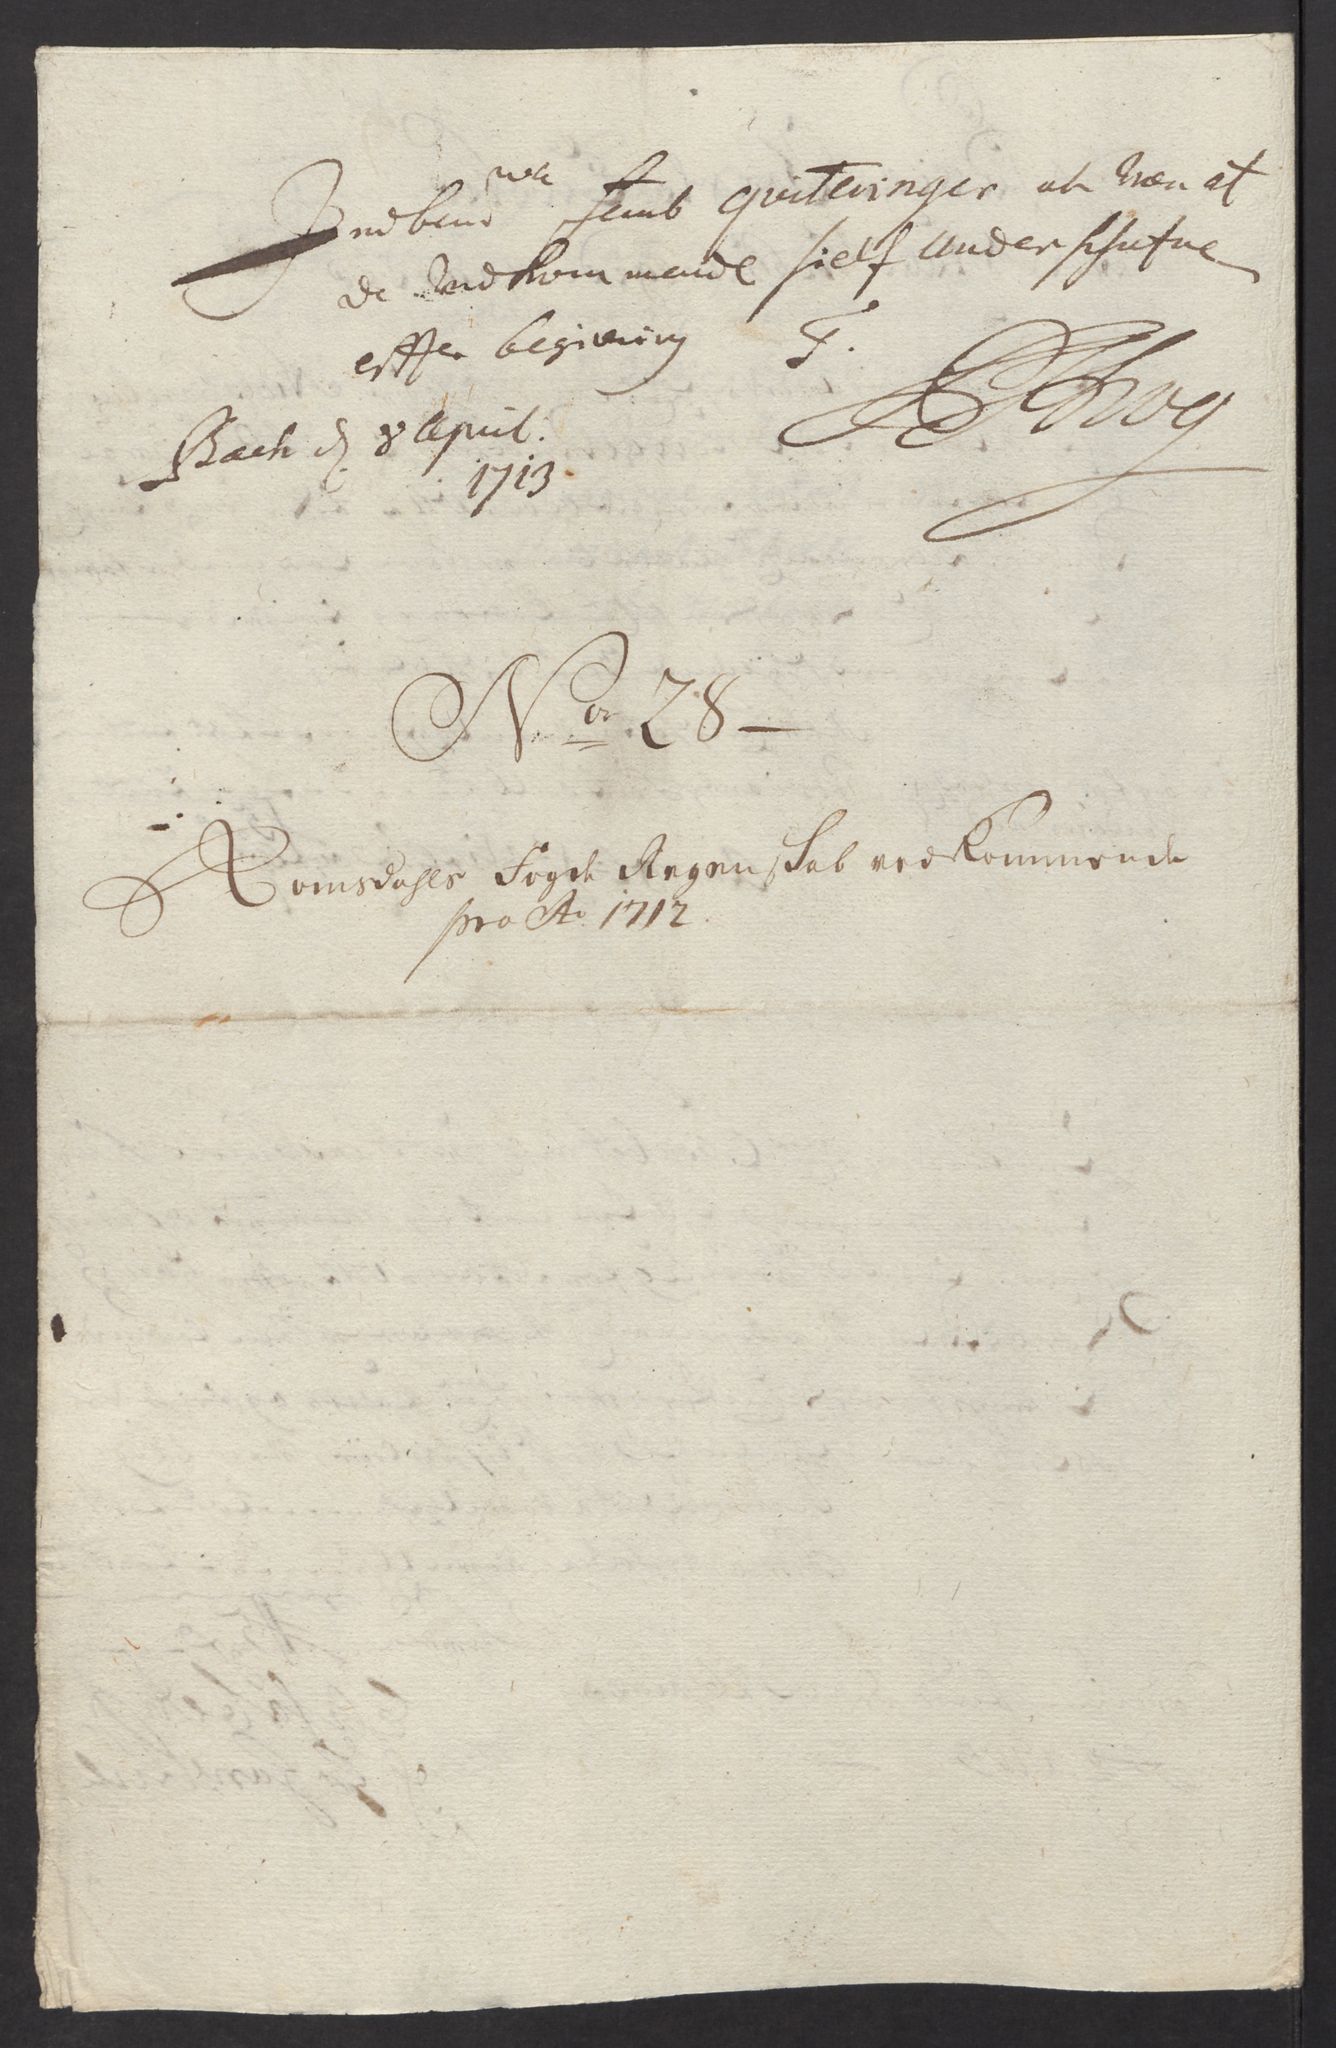 Indben te femb qvitteringer at være at
de vedkommende sielf underschrefne
effter begiering T.
Schog
Bach d. 8 April.
1713
No 28
Romsdahls Fogde Regenskab vedkommende
pro Ao 1712.